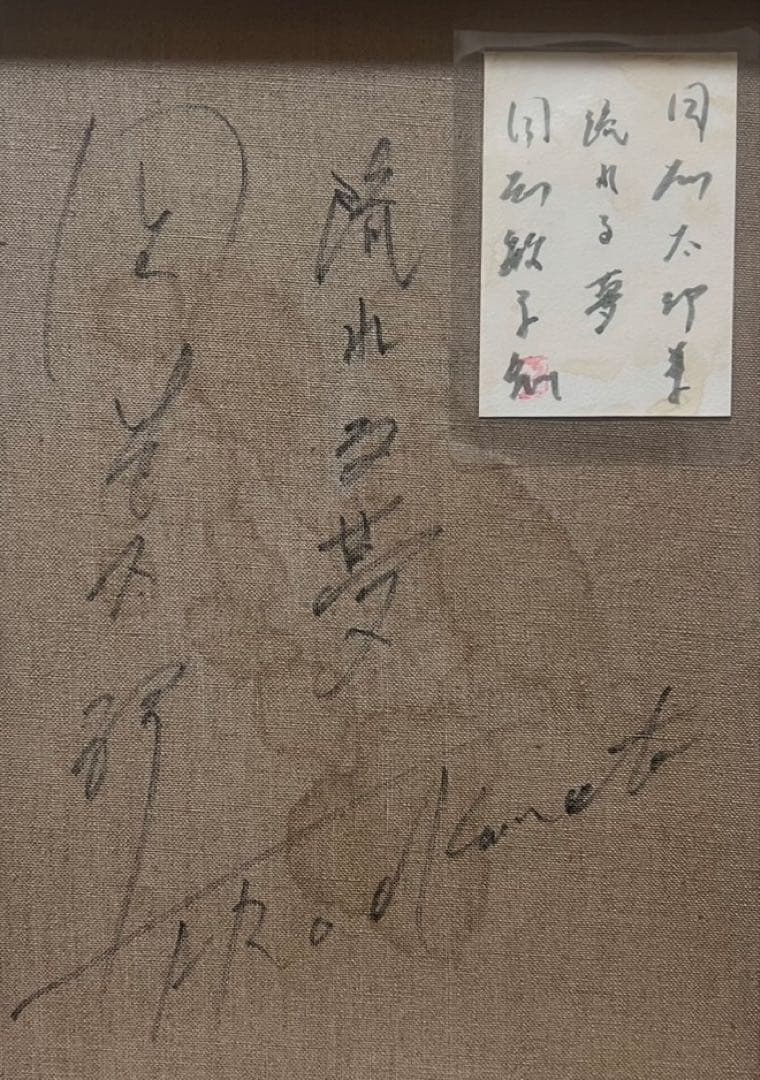 岡本太郎筆
流れる夢
岡本敏子識
流れる夢
岡本太郎
TARO Okamoto